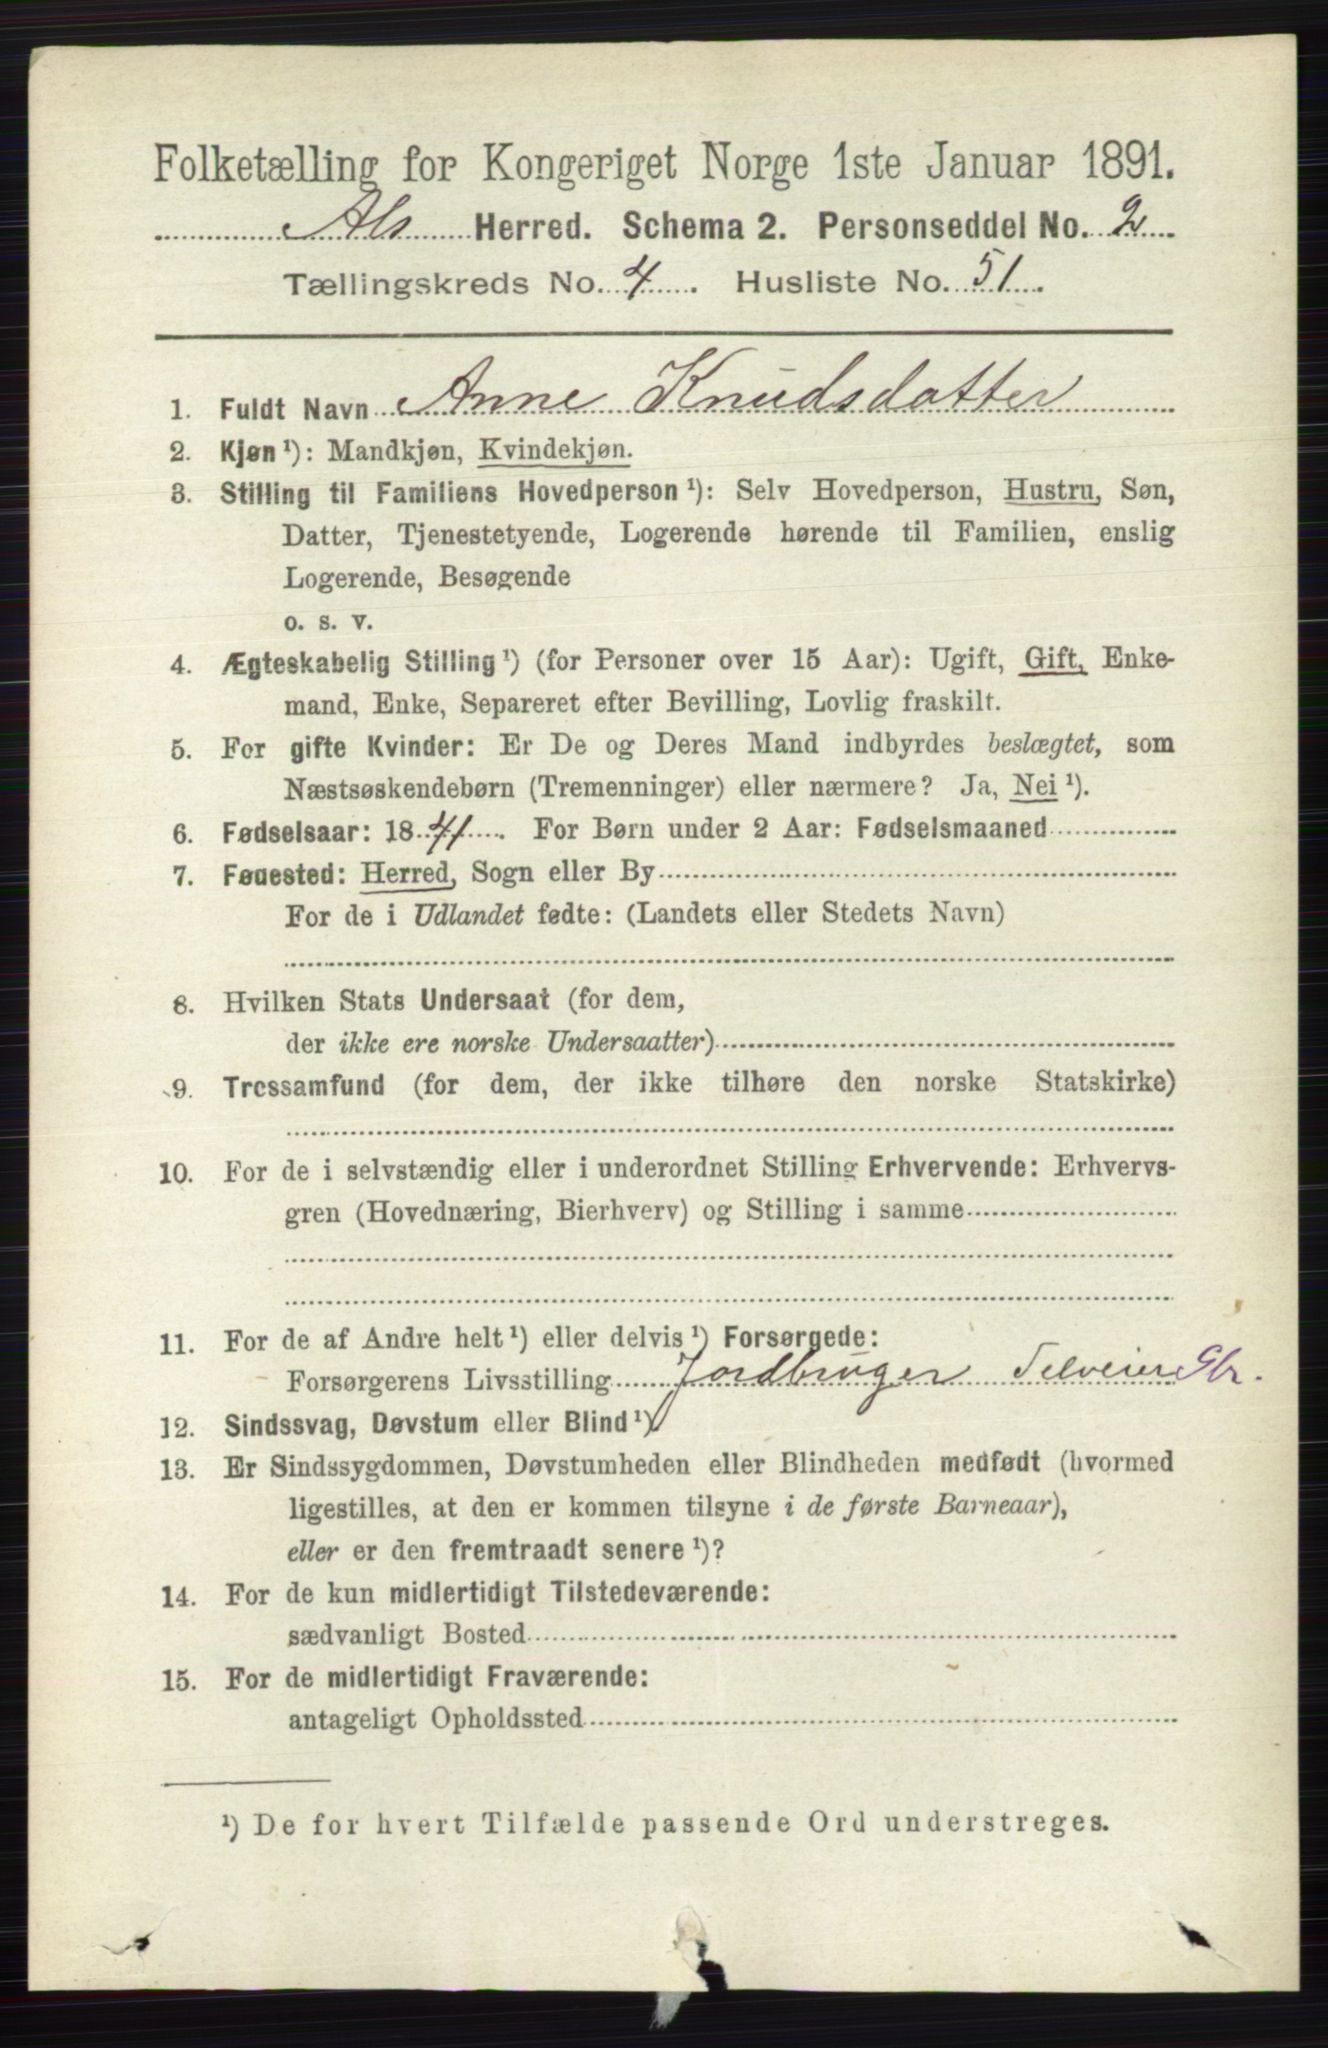 Folketælling for Kongeriget Norge 1ste Januar 1891.
Als Herred. Schema 2. Personseddel No. 2
Tællingskreds No. 4. Husliste No. 51.
1. Fuldt Navn Anne Knudsdatter
2. Kjøn ¹): Mandkjøn, Kvindekjøn.
3. Stilling til Familiens Hovedperson ¹): Selv Hovedperson, Hustru, Søn,
Datter, Tjenestetyende, Logerende hørende til Familien, enslig
Logerende, Besøgende
o. s. v.
4. Ægteskabelig Stilling ¹) (for Personer over 15 Aar): Ugift, Gift, Enke-
mand, Enke, Separeret efter Bevilling, Lovlig fraskilt.
5. For gifte Kvinder: Er De og Deres Mand indbyrdes beslægtet, som
Næstsøskendebørn (Tremenninger) eller nærmere? Ja, Nei ¹).
6. Fødselsaar: 1841. For Børn under 2 Aar: Fødselsmaaned
7. Fødested: Herred, Sogn eller By
For de i Udlandet fødte: (Landets eller Stedets Navn)
8. Hvilken Stats Undersaat (for dem,
der ikke ere norske Undersaatter)
9. Trossamfund (for dem, der ikke tilhøre den norske Statskirke)
10. For de i selvstændig eller i underordnet Stilling Erhvervende: Erhvervs-
gren (Hovednæring, Bierhverv) og Stilling i samme
11. For de af Andre helt ¹) eller delvis ¹) Forsørgede:
Forsørgerens Livsstilling Jordbruger Selveier Gbr.
12. Sindssvag, Døvstum eller Blind ¹)
13. Er Sindssygdommen, Døvstumheden eller Blindheden medfødt (hvormed
ligestilles, at den er kommen tilsyne i de første Barneaar),
eller er den fremtraadt senere ¹)?
14. For de kun midlertidigt Tilstedeværende:
sædvanligt Bosted
15. For de midlertidigt Fraværende:
antageligt Opholdssted
¹) De for hvert Tilfælde passende Ord understreges.